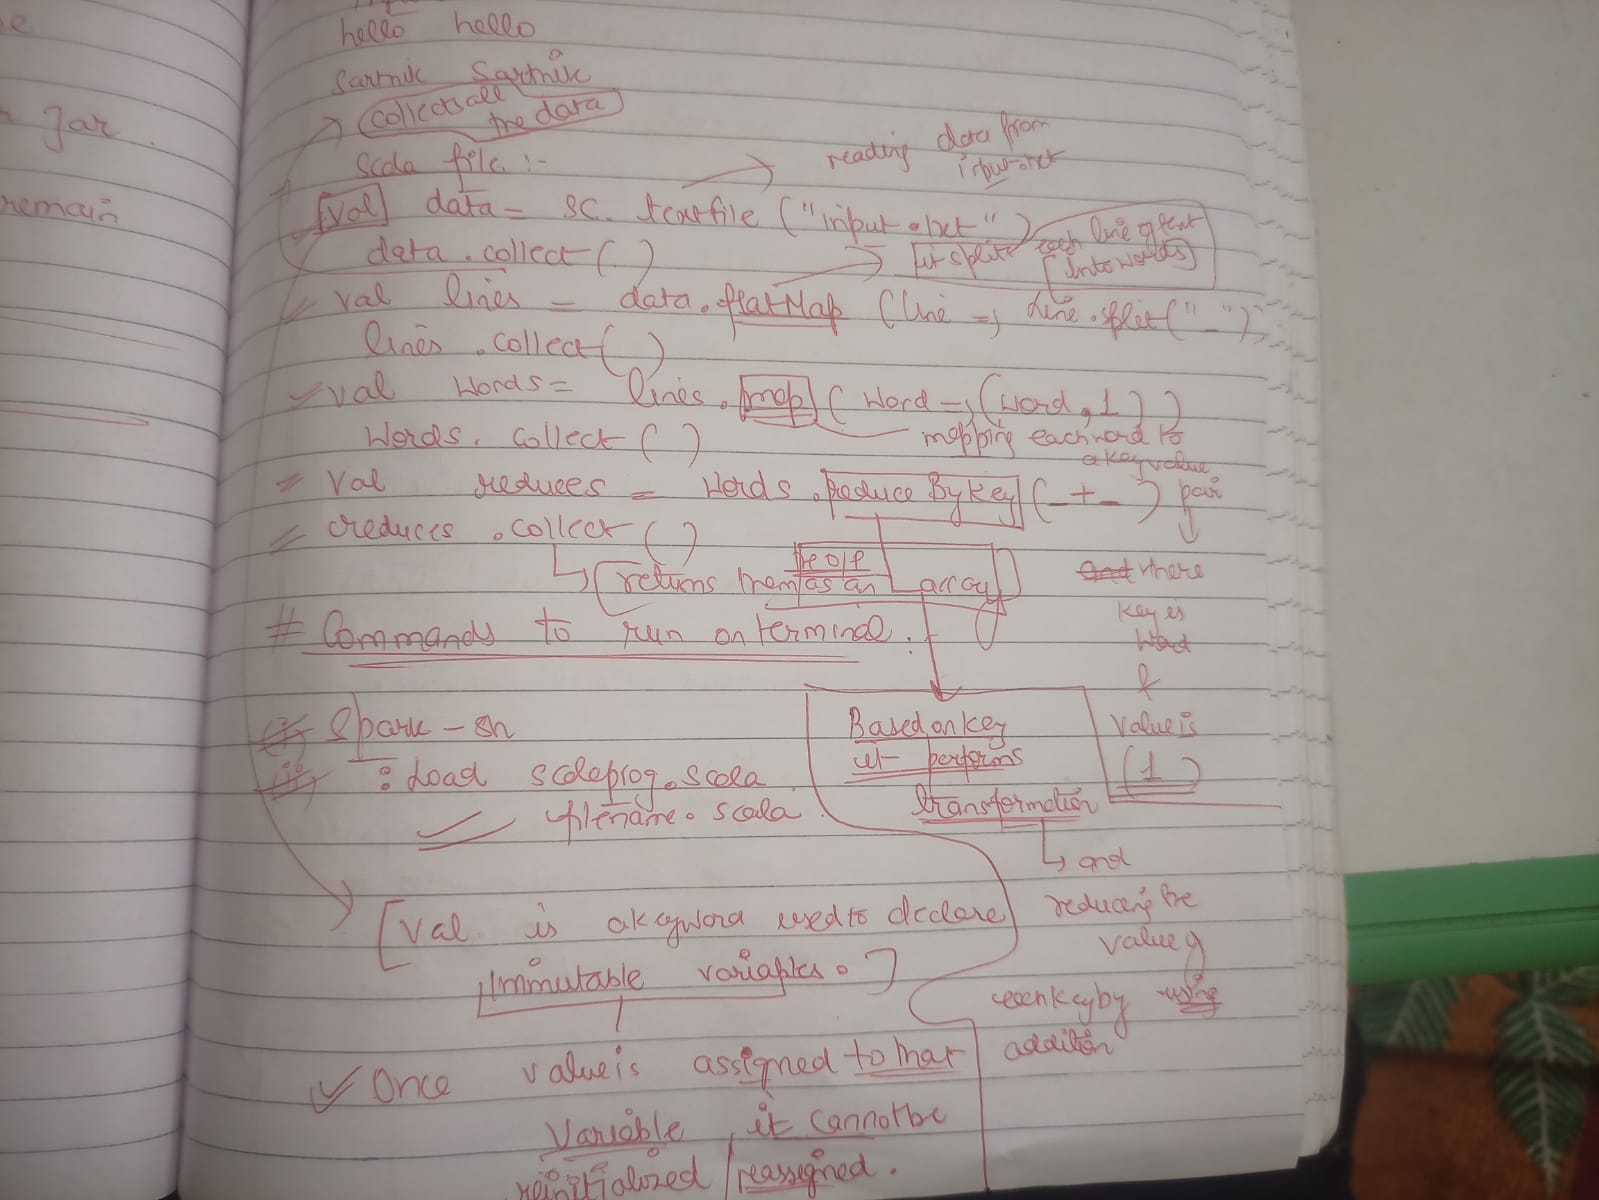 hello hello
Sarthik Sarthik
collects all
the data
Scala file :-
reading data from
input.txt
[Val] data = sc. textfile ("input.txt")
data.collect()
it splits each line of text
[into words]
val lines = data.flatMap (line => line.split("_"))
lines.collect()
val words = lines.map (word => (word, 1))
words.collect()
mapping each word to
a key value
pair
val reduces = words.reduceByKey (_+_)
reduces.collect()
the o/p
returns them as an array
and where
key is
word
&
value is
(1)
# Commands to run on terminal :
i) Spark-sh
ii) :load scalaprog.scala
filename.scala
Based on key
it performs
transformation
and
reducing the
value of
each key by using
addition
[Val is a keyword used to declare
immutable variables.]
Once value is assigned to that
variable, it cannot be
reinitialized/reassigned.
e
Jar
remain